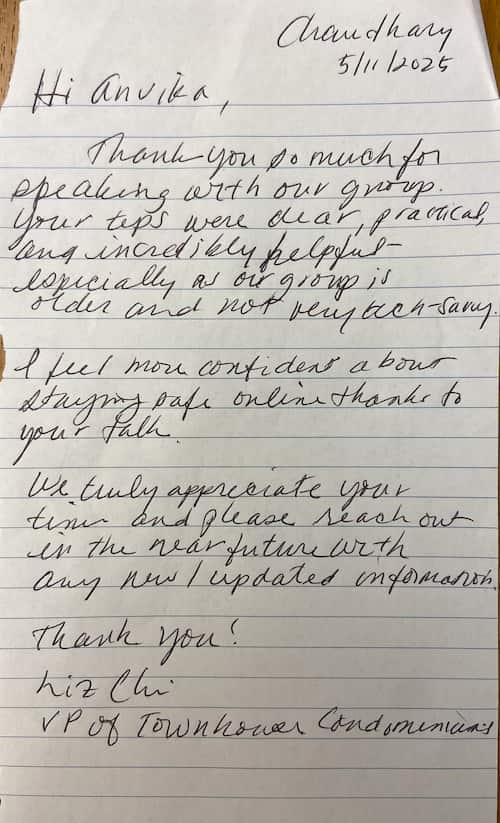 Chaudhary
5/11/2025
Hi Anvika,
Thank you so much for
speaking with our group.
Your tips were clear, practical,
and incredibly helpful-
especially as our group is
older and not very tech-savvy.
I feel more confident about
staying safe online thanks to
your talk.
We truly appreciate your
time and please reach out
in the near future with
any new / updated information.
Thank you!
Liz Chi
VP of Townhower Condominiums